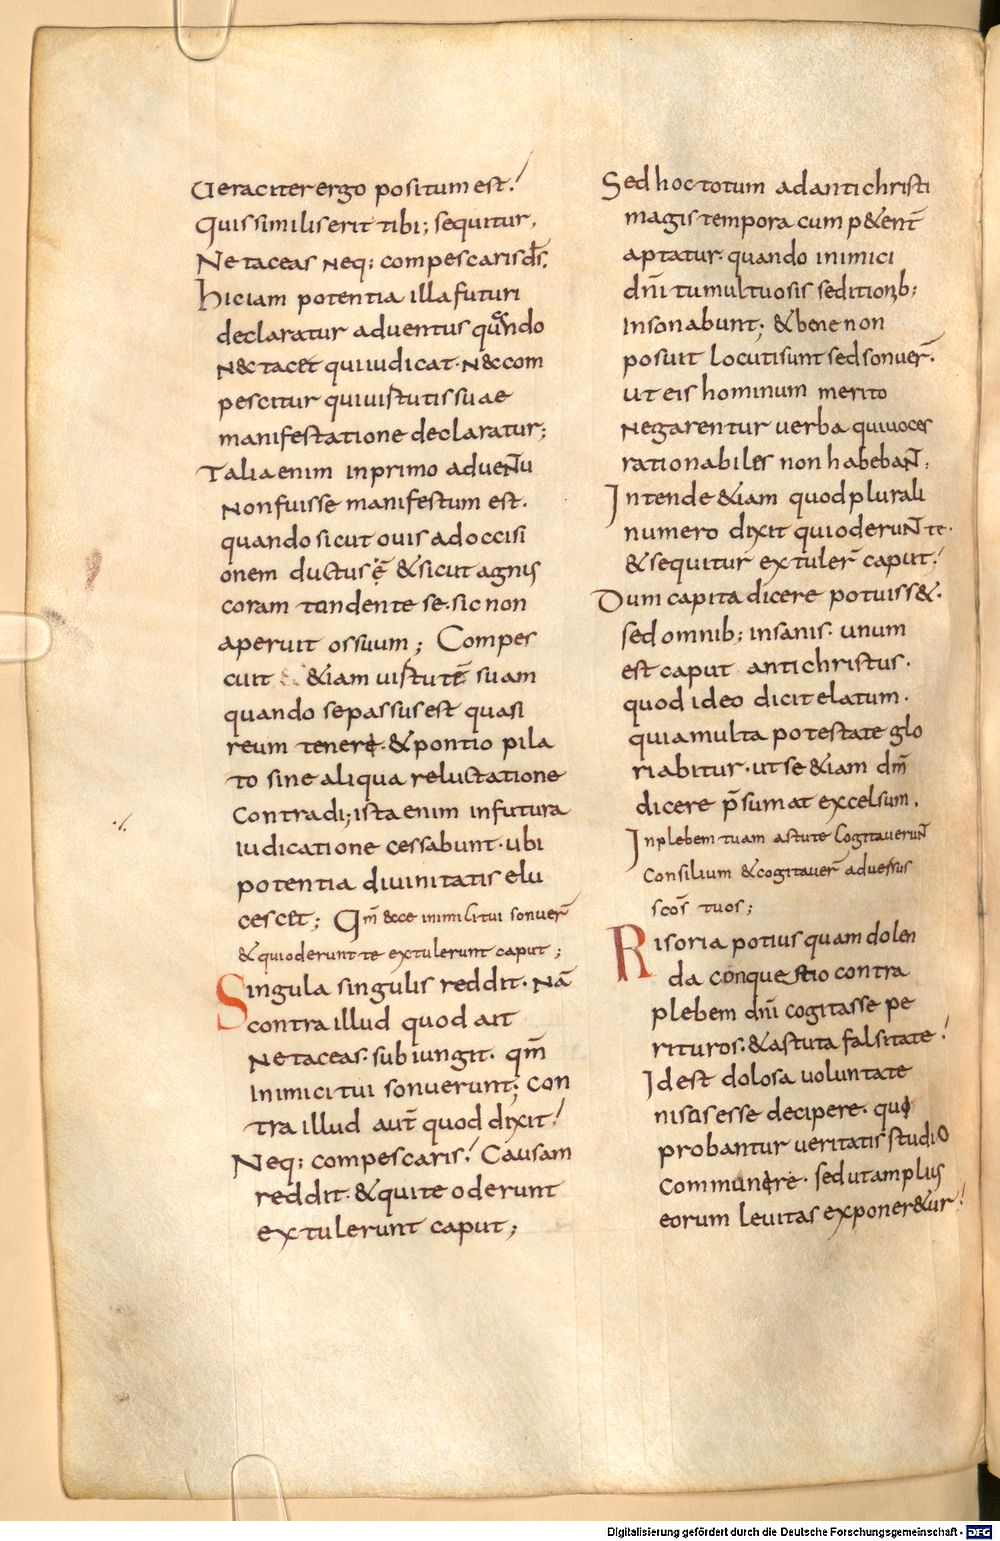 Ueraciter ergo positum est!
Quis similis erit tibi; sequitur,
Ne taceas neq; compescaris d̄s.
Hic iam potentia illa futuri
declaratur aduentus quando
n& tacet qui iudicat. n& com
pescitur qui uirtutis suae
manifestatione declaratur;
Talia enim in primo aduentu
non fuisse manifestum est.
quando sicut ouis ad occisi
onem ductus ē & sicut agnus
coram tondente se. sic non
aperuit os suum; Compes
cuit &iam uirtutē suam
quando se passus est quasi
reum teneri. & pontio pila
to sine aliqua reluctatione
contradi; ista enim in futura
iudicatione cessabunt. ubi
potentia diuinitatis elu
cescet; Qm̄ ecce inimici tui sonuer̄
& qui oderunt te extulerunt caput;
Singula singulis reddit. Nā
contra illud quod ait
Ne taceas. subiungit. qm̄
inimici tui sonuerunt; Con
tra illud aut̄ quod dixit!
Neq; compescaris! Causam
reddit. & qui te oderunt
extulerunt caput;
Sed hoc totum ad antichristi
magis tempora cum p&ent̄
aptatur. quando inimici
dn̄i tumultuosis seditionib;
insonabunt; & bene non
posuit locuti sunt sed sonuer̄.
ut eis hominum merito
negarentur uerba qui uoces
rationabiles non habebant̄;
Intende &iam quod plurali
numero dixit qui oderunt te.
& sequitur extuler̄ caput!
Dum capita dicere potuiss&.
sed omnib; insanis. unum
est caput antichristus.
quod ideo dicit elatum.
quia multa potestate glo
riabitur. ut se &iam dm̄
dicere p̄sumat excelsum.
In plebem tuam astute cogitauerunt̄
consilium & cogitauer̄ aduersus
scōs tuos;
Risoria potius quam dolen
da conquestio contra
plebem dn̄i cogitasse pe
rituros. & astuta falsitate!
Id est dolosa uoluntate
nisus esse decipere. qui
probantur ueritatis studio
communire. sed ut amplius
eorum leuitas exponer&ur!
Digitalisierung gefördert durch die Deutsche Forschungsgemeinschaft - DFG